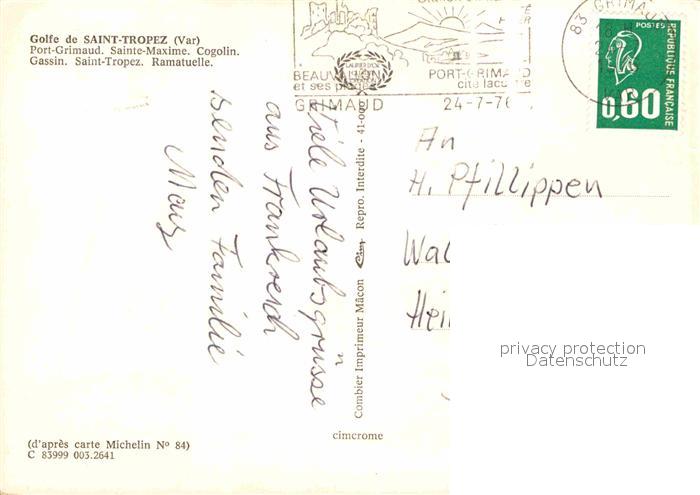 Golfe de SAINT-TROPEZ (Var)
Port-Grimaud. Sainte-Maxime. Cogolin.
Gassin. Saint-Tropez. Ramatuelle.
BEAUVALLON
et ses plages
GRIMAUD
PORT-GRIMAUD
cité lacustre
24-7-76
83 GRIMAUD
POSTES
REPUBLIQUE FRANÇAISE
0,60
An
H. Pfillippen
Wal
Hei
Viele Urlaubsgrüsse
aus Frankreich
senden Familie
Combier Imprimeur Mâcon Cim Repro. Interdite - 41-00
cimcrome
privacy protection
Datenschutz
(d'après carte Michelin Nº 84)
C 83999 003.2641